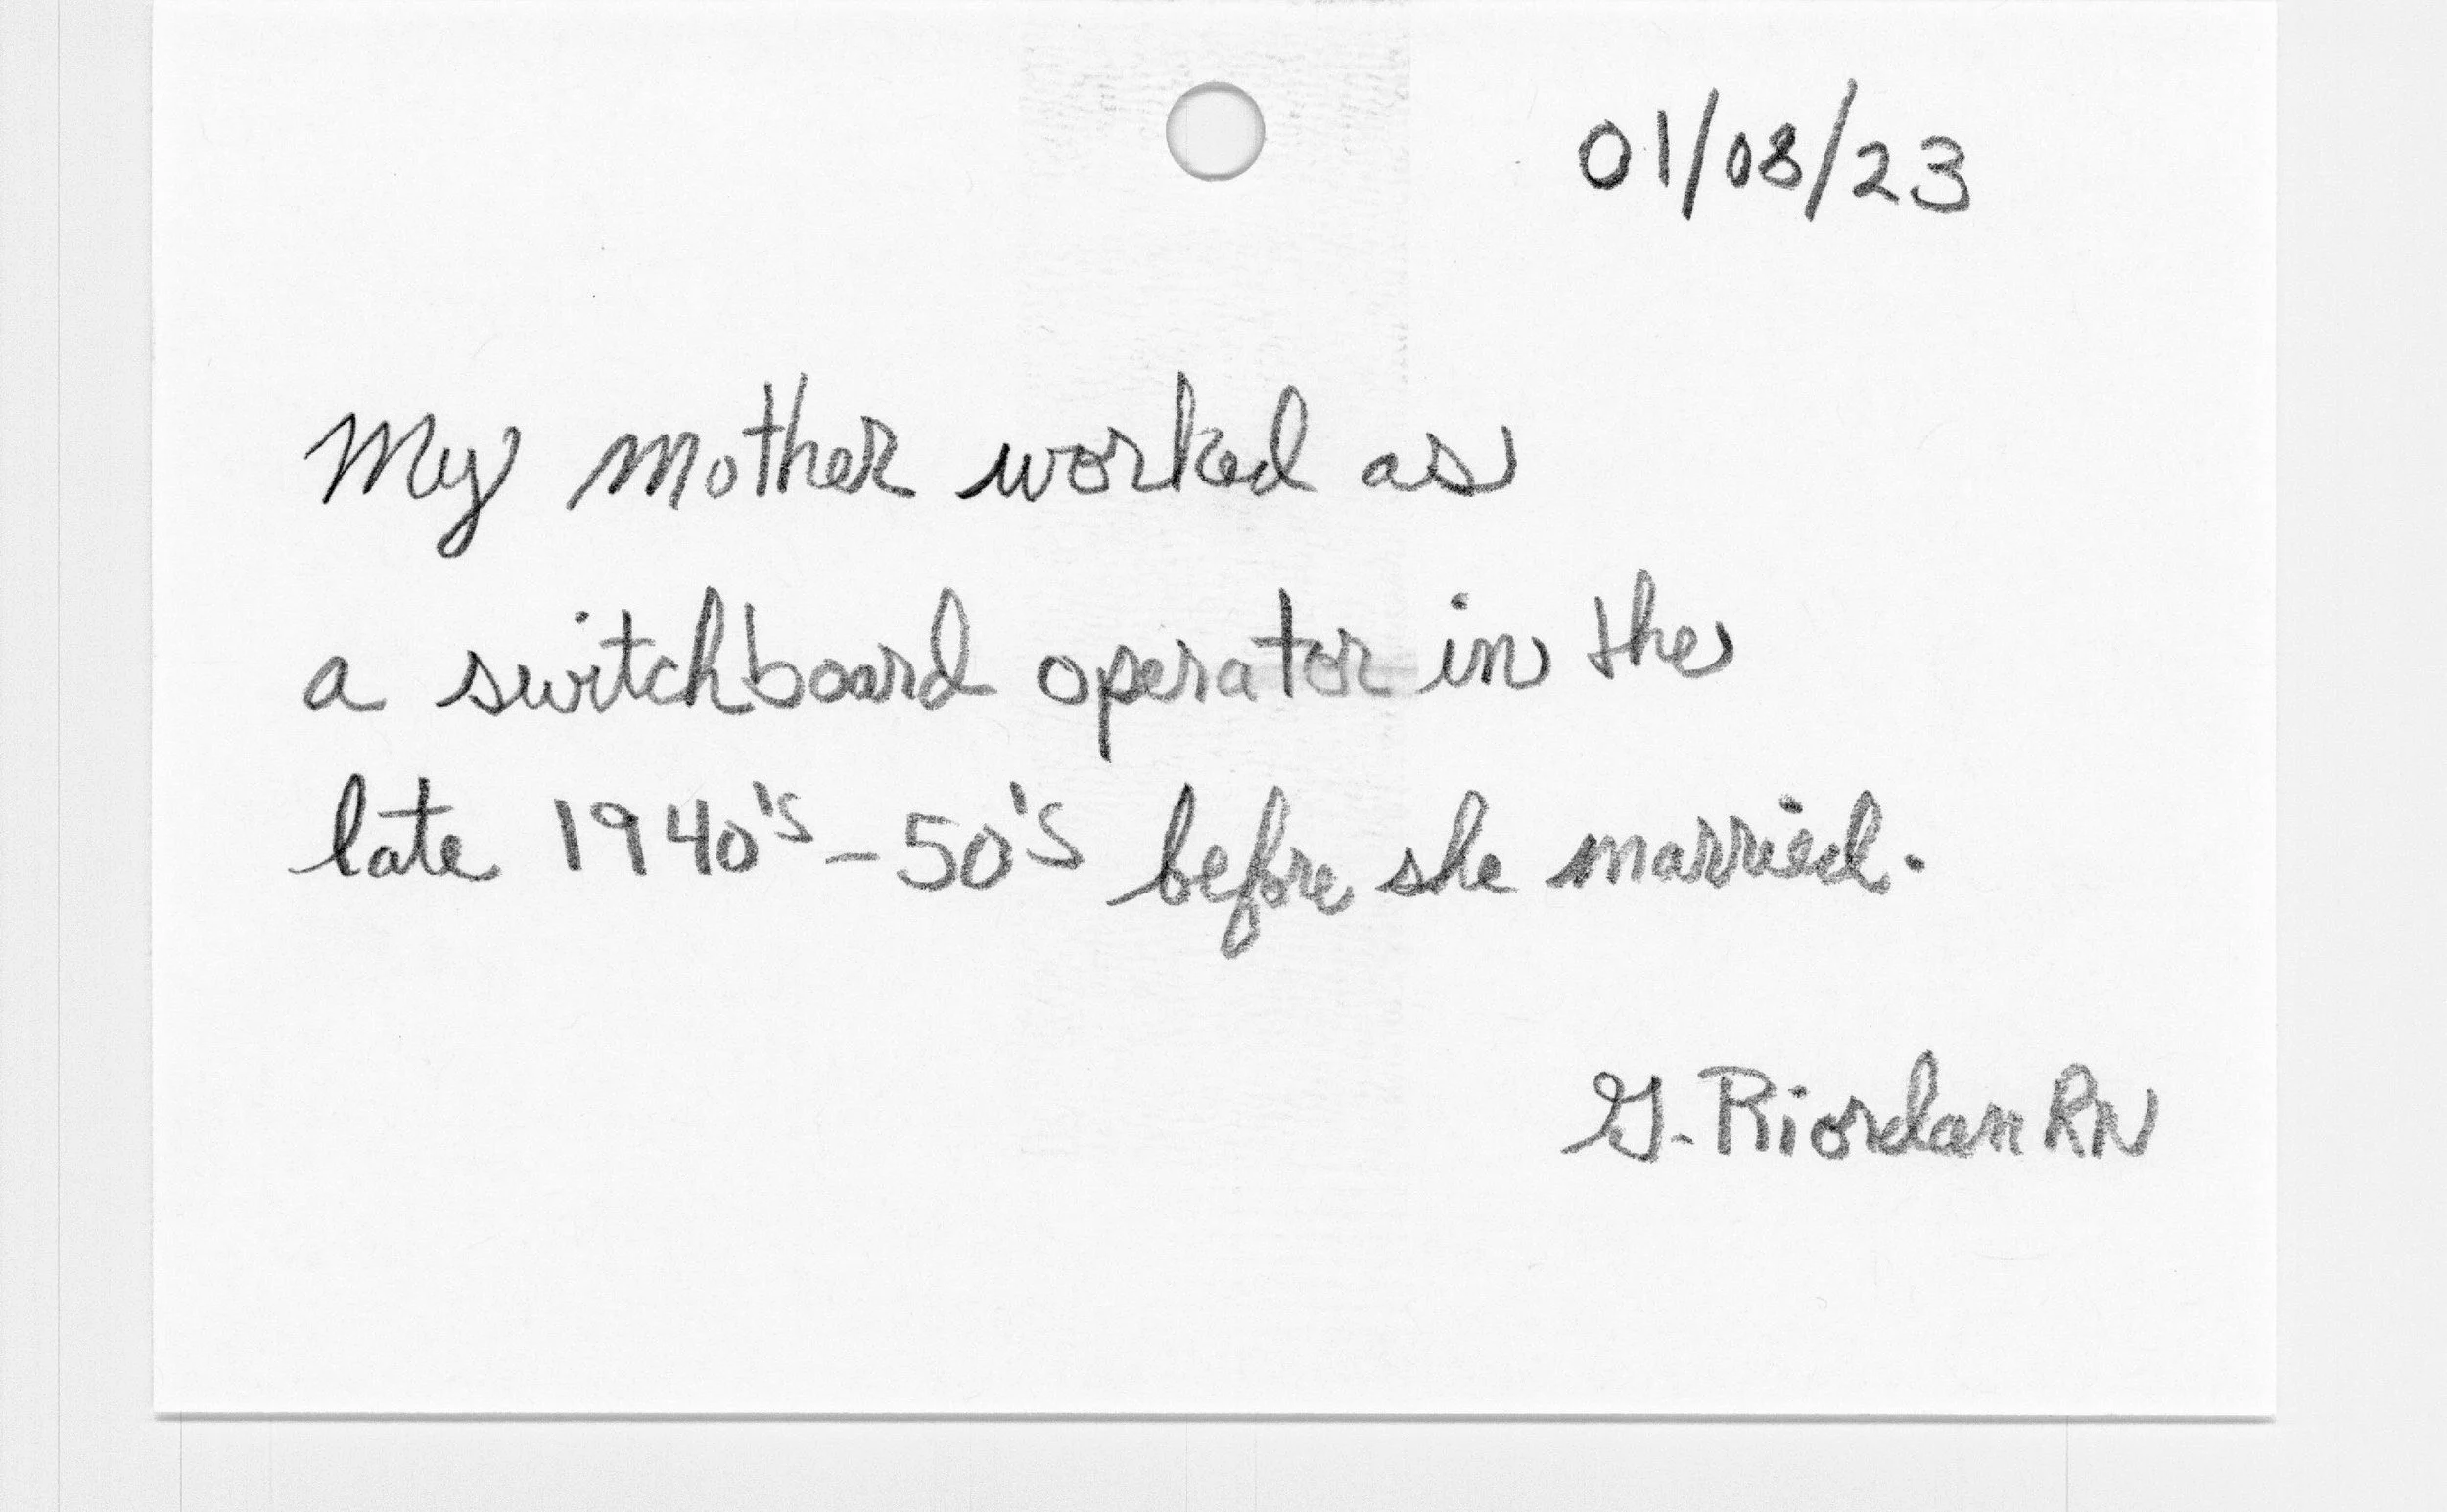 01/08/23
My mother worked as
a switchboard operator in the
late 1940's - 50's before she married.
G. Riordan RN